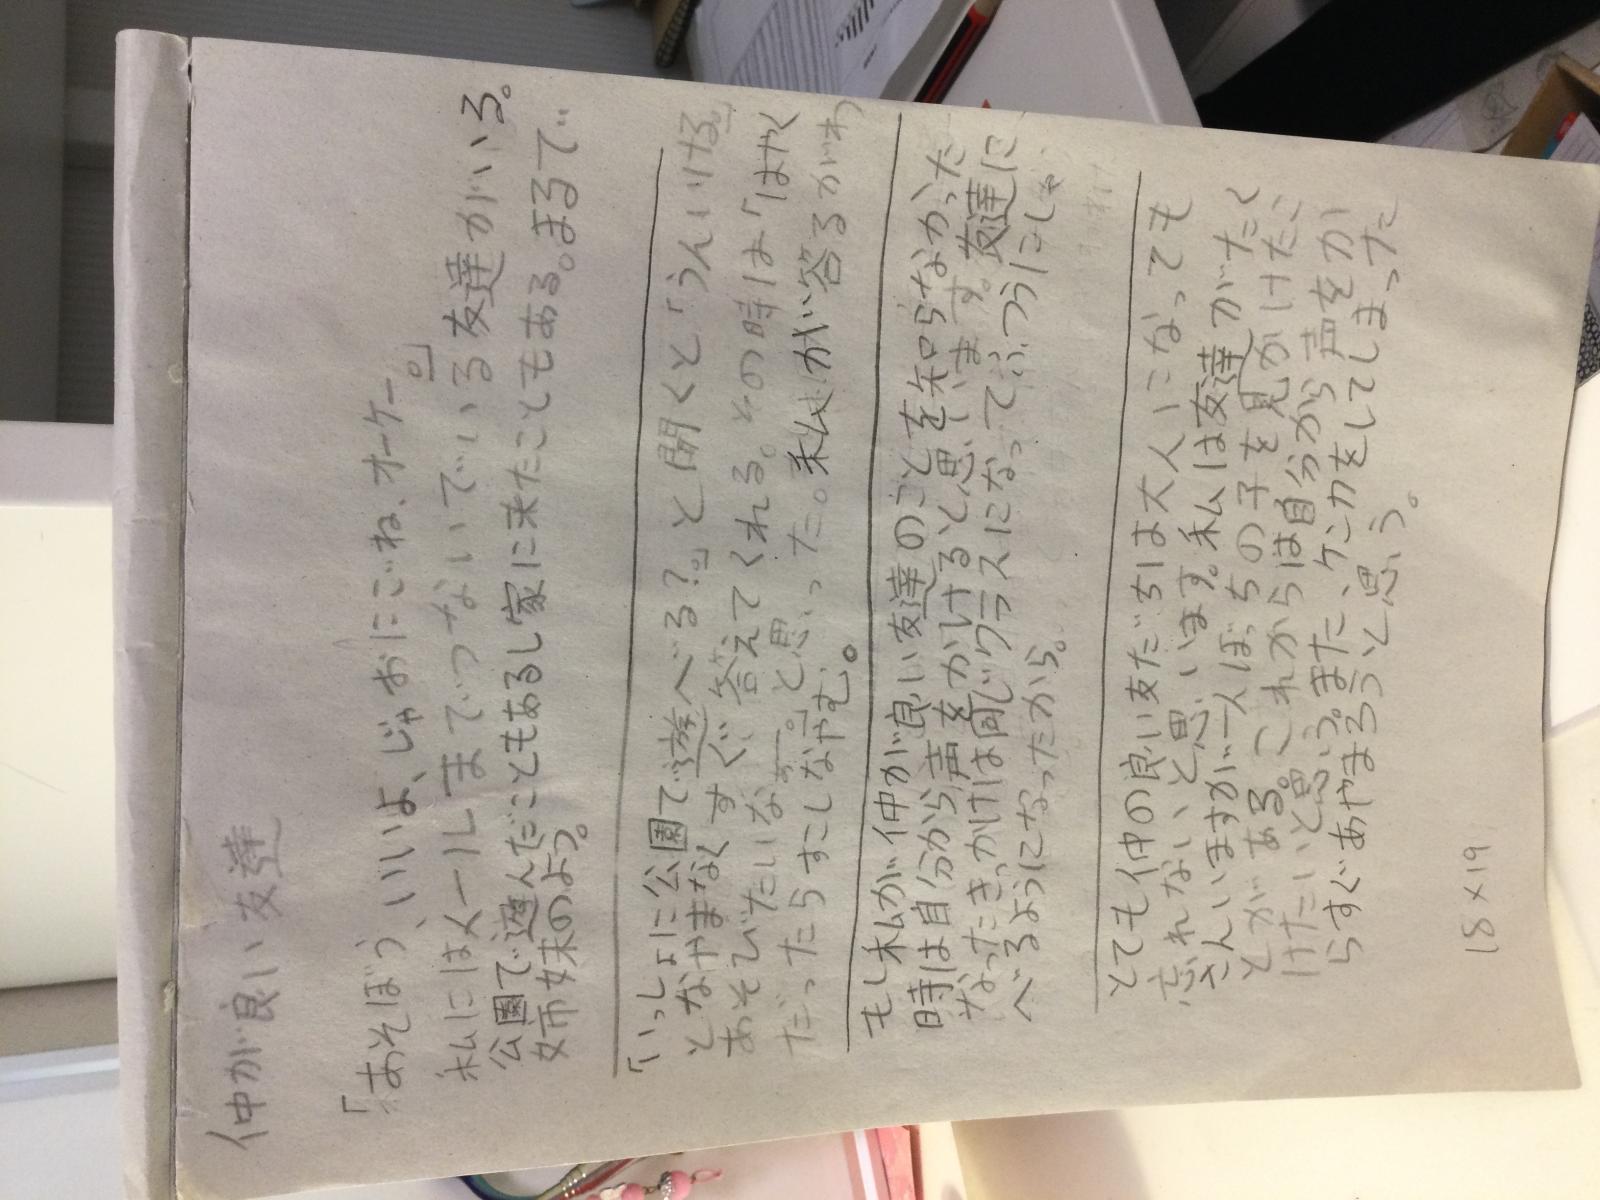 仲が良い友達
「あそぼう、いいよ、じゃおにごね、オーケー。」
私には人一人までつないでいる友達がいる。
公園で遊んだこともあるし家に来たこともある。まるで
姉妹のよう。
「いっしょに公園で遊べる?」と聞くと「うんいける。」
となやまなくすぐ答えてくれる。その時は「はやく
あそびたいなー。」と思った。私が答るがわ
だったらすこしなやむ。
もし私が仲が良い友達のことを知らなかった
時は自分から声をかけると思います。友達に
なったきっかけは同じクラスになってふつうにしゃ
べるようになったから。
とても仲の良い友だちは大人になっても
忘れないと思います。私は友達がたく
さんいますが一人ぼっちの子を見かけたこ
とがある。これからは自分から声をか
けたいと思う。また、ケンカをしてしまった
らすぐあやまろうと思う。
18×19